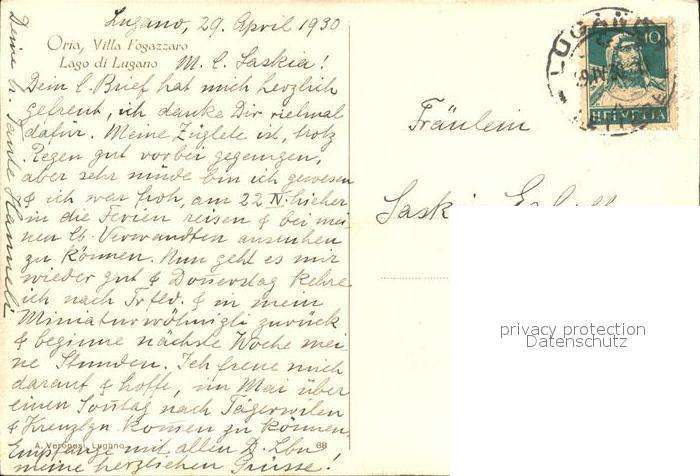 Lugano, 29. April 1930
Oria, Villa Fogazzaro
Lago di Lugano
M. l. Saskia!
Dein l. Brief hat mich herzlich
gefreut, ich danke Dir vielmal
dafür. Meine Züglete ist, trotz
Regen gut vorbei gegangen,
aber sehr müde bin ich gewesen
& ich war froh, am 22 IV. hieher
in die Ferien reisen & bei mei
nen lb. Verwandten ausruhen
zu können. Nun geht es mir
wieder gut & Donnerstag kehre
ich nach Frfld. & in mein
Miniaturwöhnigli zurück
& beginne nächste Woche mei
ne Stunden. Ich freue mich
darauf & hoffe, im Mai über
einen Sonntag nach Tägerwilen
& Kreuzlgn. kommen zu können.
Empfange mit allen D. Lbn.
meine herzlichen Grüsse!
Deine tr. Tante Hanneli
A. Veronesi, Lugano
68
LUGANO
10
HELVETIA
Fräulein
Saskia
privacy protection
Datenschutz